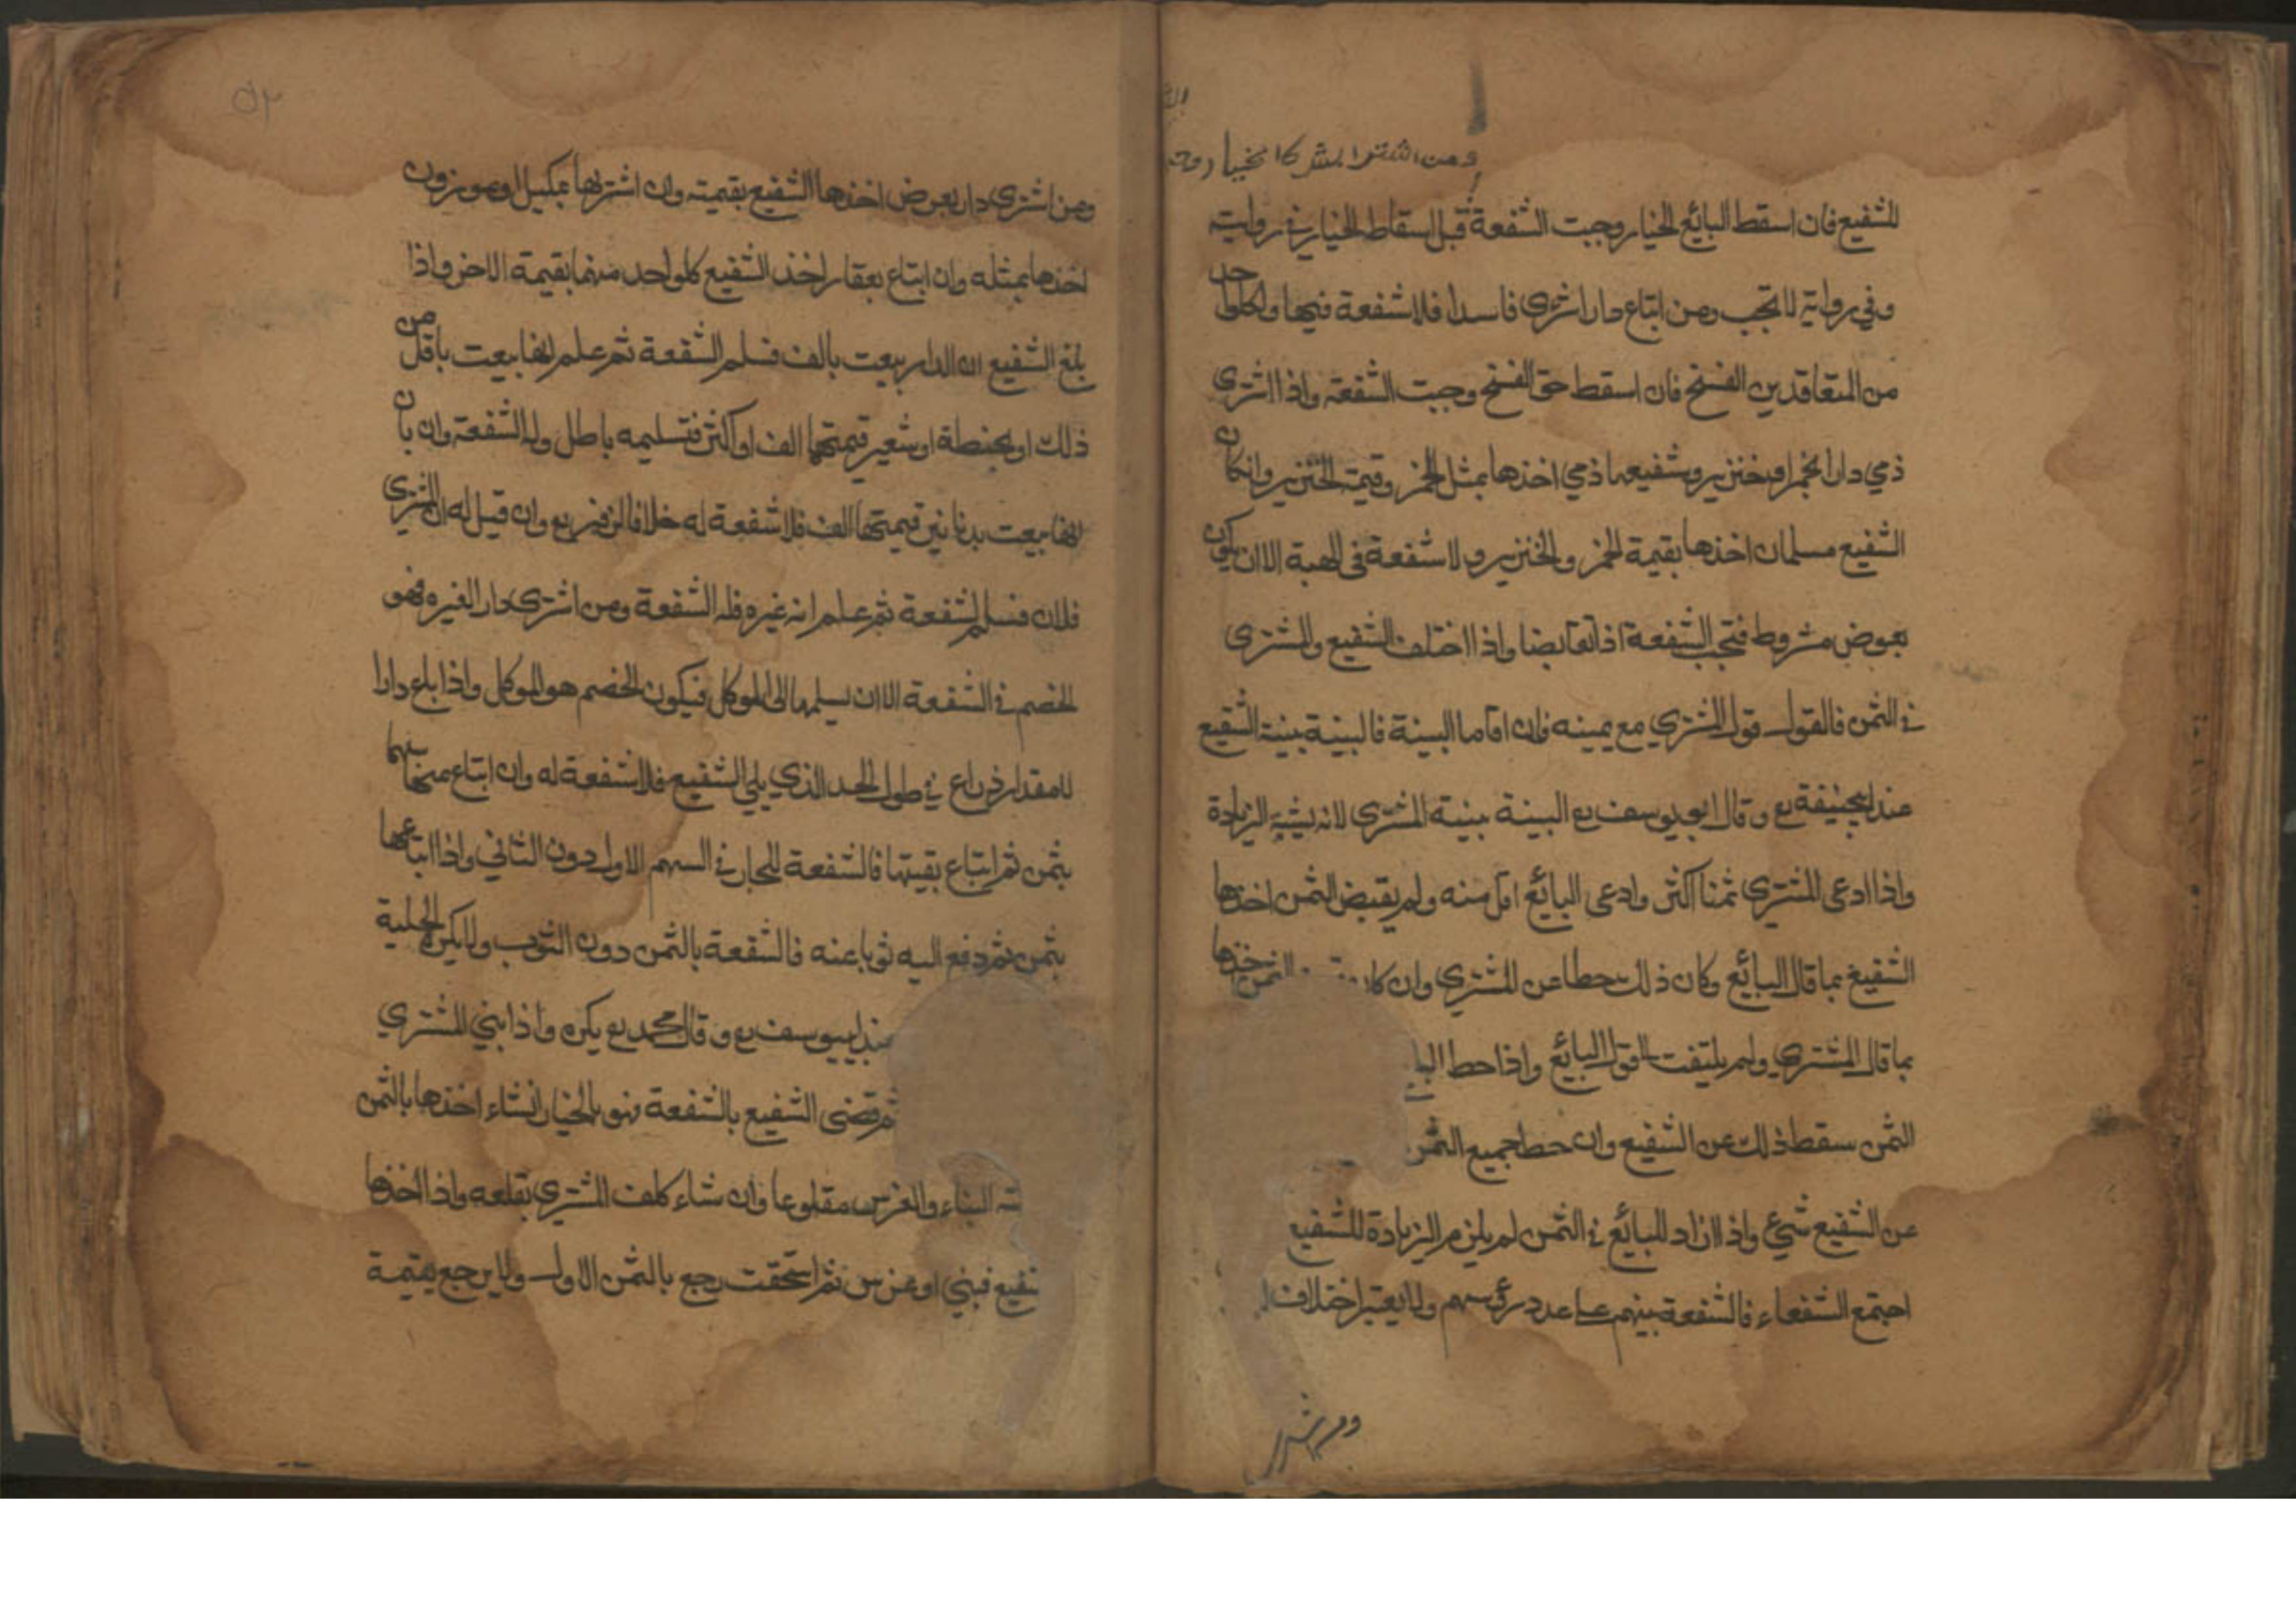 ومن اشترا بشر
للشفيع فان اسقط البائع الخيار وجبت الشفعة قبل اسقاط الخيار في رواية
وفي رواية لا تجب ومن ابتاع دارا شرى فاسدا فلا شفعة فيها ولكلواحد
من المتعاقدين الفسخ فان اسقط حق الفسخ وجبت الشفعة واذا اشترى
ذمي دارا بخمر او خنزير وشفيعها ذمي اخذها بمثل الخمر وقيمة الخنزير وانكان
الشفيع مسلمان اخذها بقيمة الخمر والخنزير ولا شفعة في الهبة الا ان يكون
بعوض مشروط فتجب الشفعة اذا تقابضا واذا اختلف الشفيع والمشترى
في الثمن فالقول قول المشتري مع يمينه فان اقاما البينة فالبينة بينة الشفيع
عند ابيحنيفة رح وقال ابو يوسف رح البينة بينة المشترى لانه يثبت الزيادة
واذا ادعى المشتري ثمنا اكثر وادعى البائع اقل منه ولم يقبض الثمن اخذها
الشفيع بما قال البائع وكان ذلك حطا عن المشتري وان كان الثمن
بما قال المشتري ولم يلتفت الى قول البائع واذا حط
الثمن سقط ذلك عن الشفيع وان حط جميع الثمن
عن الشفيع شيء واذا زاد للبائع في الثمن لم يلزم الزيادة للشفيع
اجتمع الشفعاء فالشفعة بينهم على عدد رؤسهم ولا يعتبر اختلاف
٥٢
ومن اشترى دار بعرض اخذها الشفيع بقيمته وان اشتريها بمكيل او موزون
اخذها بمثله وان ابتاع بعقار اخذ الشفيع كلواحد منهما بقيمة الاخر واذا
بلغ الشفيع ان الدار بيعت بالف فسلم الشفعة ثم علم انها بيعت باقل من
ذلك او بحنطة او شعير قيمتها الف او اكثر فتسليمه باطل وله الشفعة وان بان
انها بيعت بدنانير قيمتها الف فلا شفعة له خلافا لزفر رح وان قيل له ان المشتري
فلان فسلم الشفعة ثم علم انه غيره فله الشفعة ومن اشترى دار الغيره فهو
الخصم في الشفعة الا ان يسلمها الى الموكل فيكون الخصم هو الموكل واذا باع دارا
الا مقدار ذراع في طول الحد الذي يلي الشفيع فلا شفعة له وان ابتاع منها سهما
بثمن ثم ابتاع بقيتها فالشفعة للجار في السهم الاول دون الثاني واذا ابتاعها
بثمن ثم دفع اليه ثوبا عنه فالشفعة بالثمن دون الثوب ولا يكره الحيلة
عند ابييوسف رح وقال محمد رح يكره واذا بني المشتري
ثم قضى الشفيع بالشفعة فهو بالخيار انشاء اخذها بالثمن
البناء والغرس مقلوعا وان شاء كلف المشتري بقلعه واذا اخذها
فبني او غرس ثم استحقت رجع بالثمن الاول ولا يرجع بقيمة